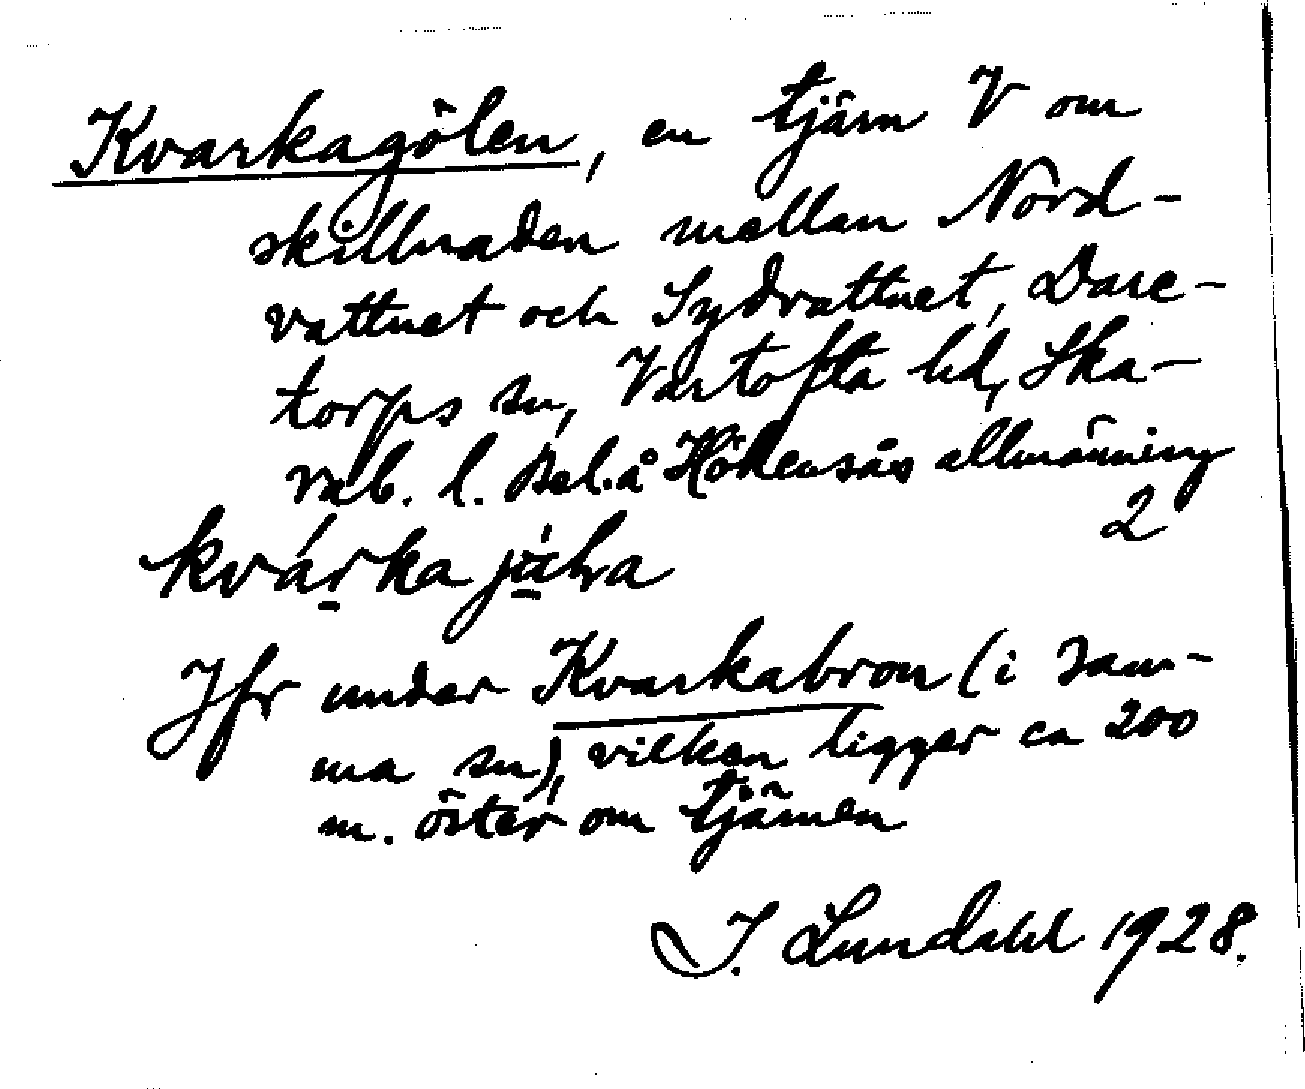 Kvarkagölen, en tjärn V om
skillnaden mellan Nord-
vattnet och Sydvattnet, Dare-
torps sn, Vartofta hd, Ska-
rab. l. Bel. å Hökensås allmänning
2
kvárka jö́lra
Jfr under Kvarkabron (i sam-
ma sn), vilken ligger ca 200
m. öster om tjärnen
I. Lundahl 1928.